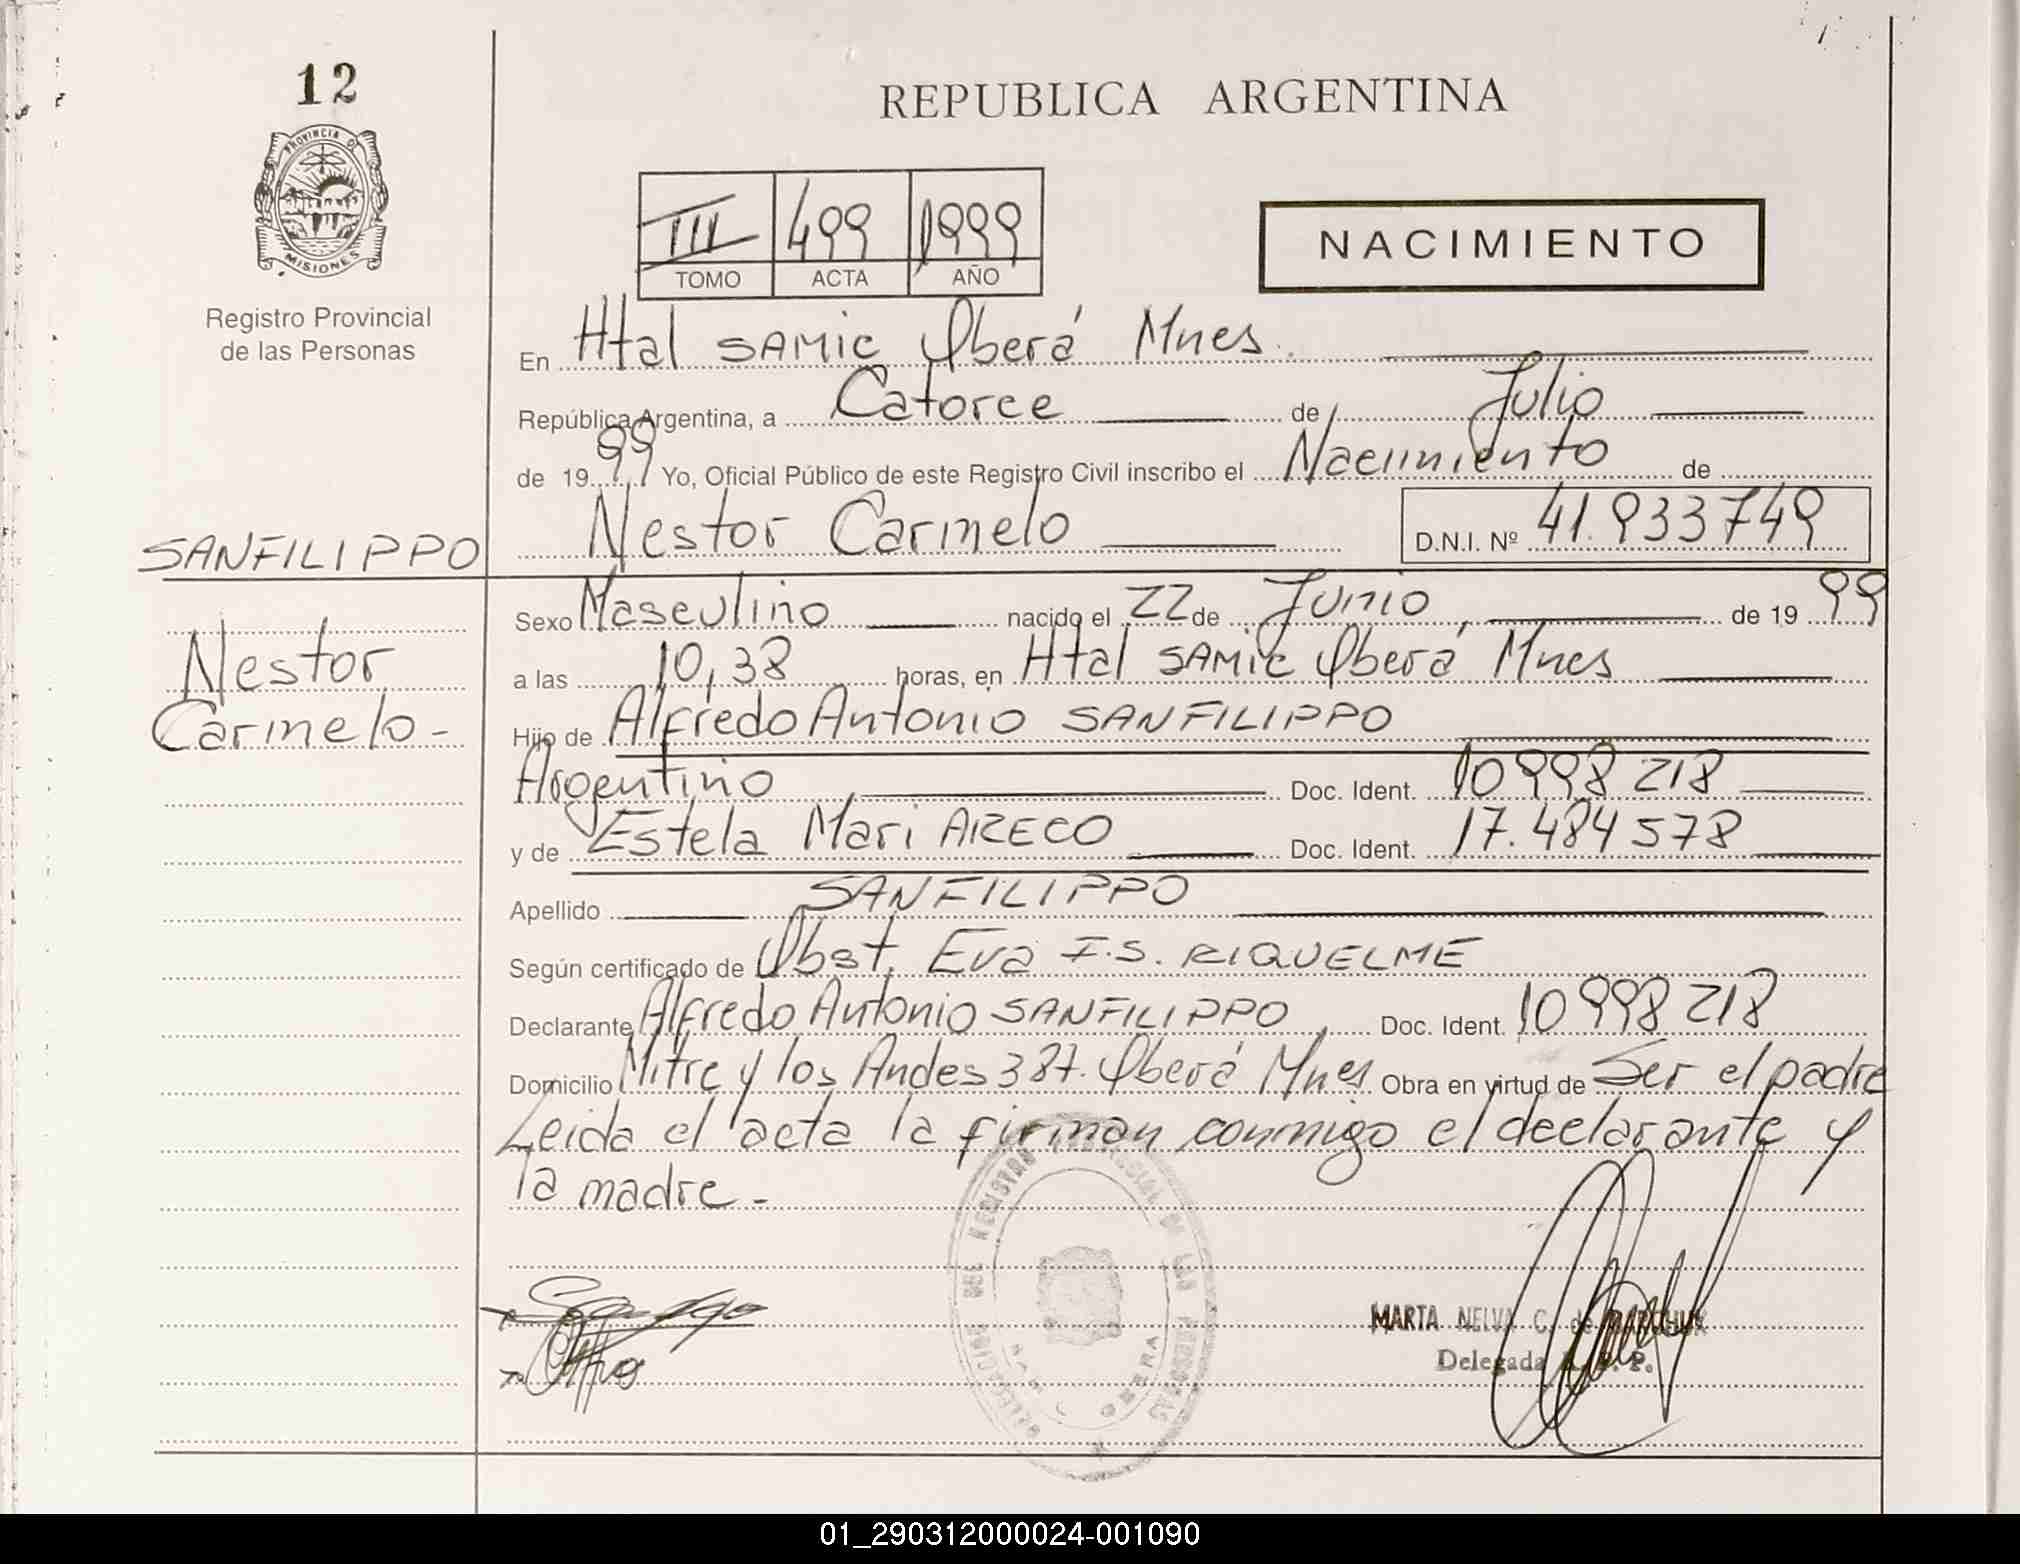 12
REPUBLICA ARGENTINA
PROVINCIA DE
MISIONES
Registro Provincial
de las Personas
III 499 1999
TOMO ACTA AÑO
NACIMIENTO
En Htal SAMIC Oberá Mnes.
República Argentina, a Catorce de Julio
de 1999 Yo, Oficial Público de este Registro Civil inscribo el Nacimiento de
SANFILIPPO
Nestor Carmelo D.N.I. Nº 41.933749
Sexo Masculino nacido el 22 de Junio, de 1999
Nestor
Carmelo-
a las 10,38 horas, en Htal SAMIC Oberá Mnes
Hijo de Alfredo Antonio SANFILIPPO
Argentino Doc. Ident. 10998218
y de Estela Mari ARECO Doc. Ident. 17.484578
Apellido SANFILIPPO
Según certificado de Obst. Eva I.S. RIQUELME
Declarante Alfredo Antonio SANFILIPPO, Doc. Ident. 10998218
Domicilio Mitre y los Andes 387. Oberá Mnes Obra en virtud de Ser el padre
Leida el acta la firman conmigo el declarante y
la madre-
DELEGACION DEL REGISTRO PROVINCIAL DE LAS PERSONAS
OBERA
MARTA NELVA C. de MARCHUK
Delegada R. P. P.
01_290312000024-001090